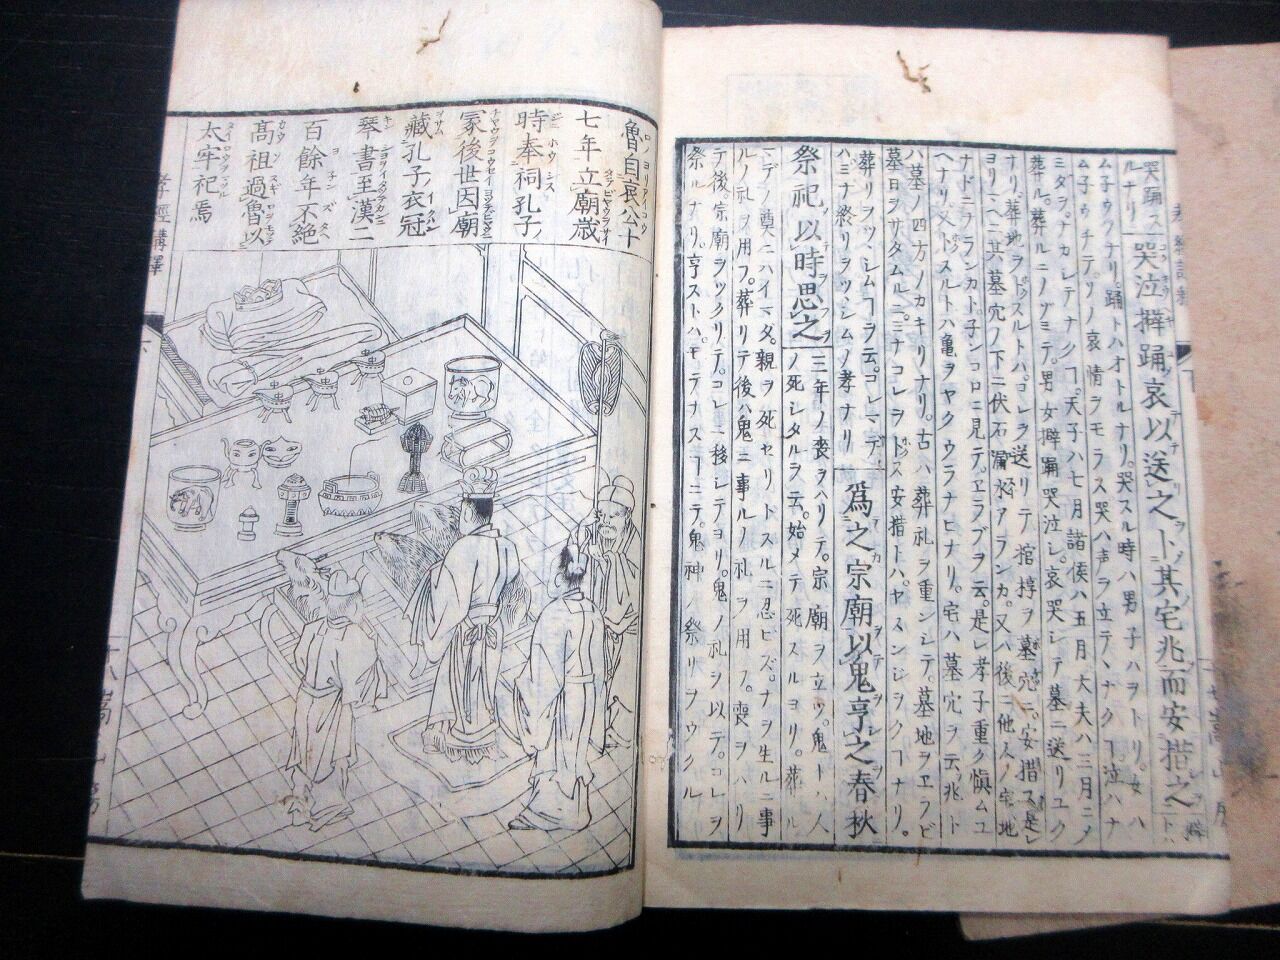 哭踊ス
ルナリ
哭泣擗踊哀以送之卜其宅兆而安措之
ム子ウツナリ。踊トハオトルナリ。哭スル時ハ男子ハヲトリ。女ハ
ム子ウチテ。ソノ哀情ヲモラス哭ハ声ヲ立テヽナクヿ。泣ハナ
ミダヲナカレテナクヿ。天子ハ七月諸侯ハ五月大夫ハ三月ニメ
葬ル。葬ルニノゾミテ。男女擗踊哭泣シ哀哭シテ墓ニ送リユク
ナリ。葬地ヲトスルトハコレヲ送リテ棺椁ヲ墓穴ニ。安措ス是レ
ヨリシヘニ其墓穴ノ下ニ伏石漏水アランカ。又ハ後ニ他人ノ宅地
ナドニナランカト。子ンコロニ見テ。ヱラブヲ云。是レ孝子重ク愼ムユ
ヘナリ。又トスルトハ亀ヲヤクウラナヒナリ。宅ハ墓穴ヲ云。兆ト
ハ墓ノ四方ノカキリナリ。古ハ葬礼ヲ重ンシテ。墓地ヲヱラビ
墓日ヲサタムル。ミナコレヲトス安措トハ。ヤスンジヲクヿナリ。
葬リヲツヽシムヿヲ云。コレマデ
ハ。ミナ終リヲツヽシムノ孝ナリ
爲之宗廟以鬼亨之春秋
祭祀以時思之
三年ノ喪ヲハリテ。宗廟ヲ立ツ。鬼トハ人
ノ死シタルヲ云。始メテ死スルヨリ。葬ル
ニデノ奠ニハイマダ。親ヲ死セリトスルニ忍ビズ。ナヲ生ルニ事
ルノ礼ヲ用フ。葬リテ後ハ鬼ニ事ルノ礼ヲ用フ。喪ヲハリ
テ後。宗廟ヲツクリテ。コレニ移シテヨリ。鬼ノ礼ヲ以テ。コレヲ
祭ルナリ。亨ストハ。モテナスヿニテ。鬼神ノ祭リヲウクル
魯自哀公十
七年立廟歳
時奉祠孔子
冢後世因廟
藏孔子衣冠
琴書至漢二
百餘年不絶
髙祖過魯以
太牢祀焉
孝經講釋